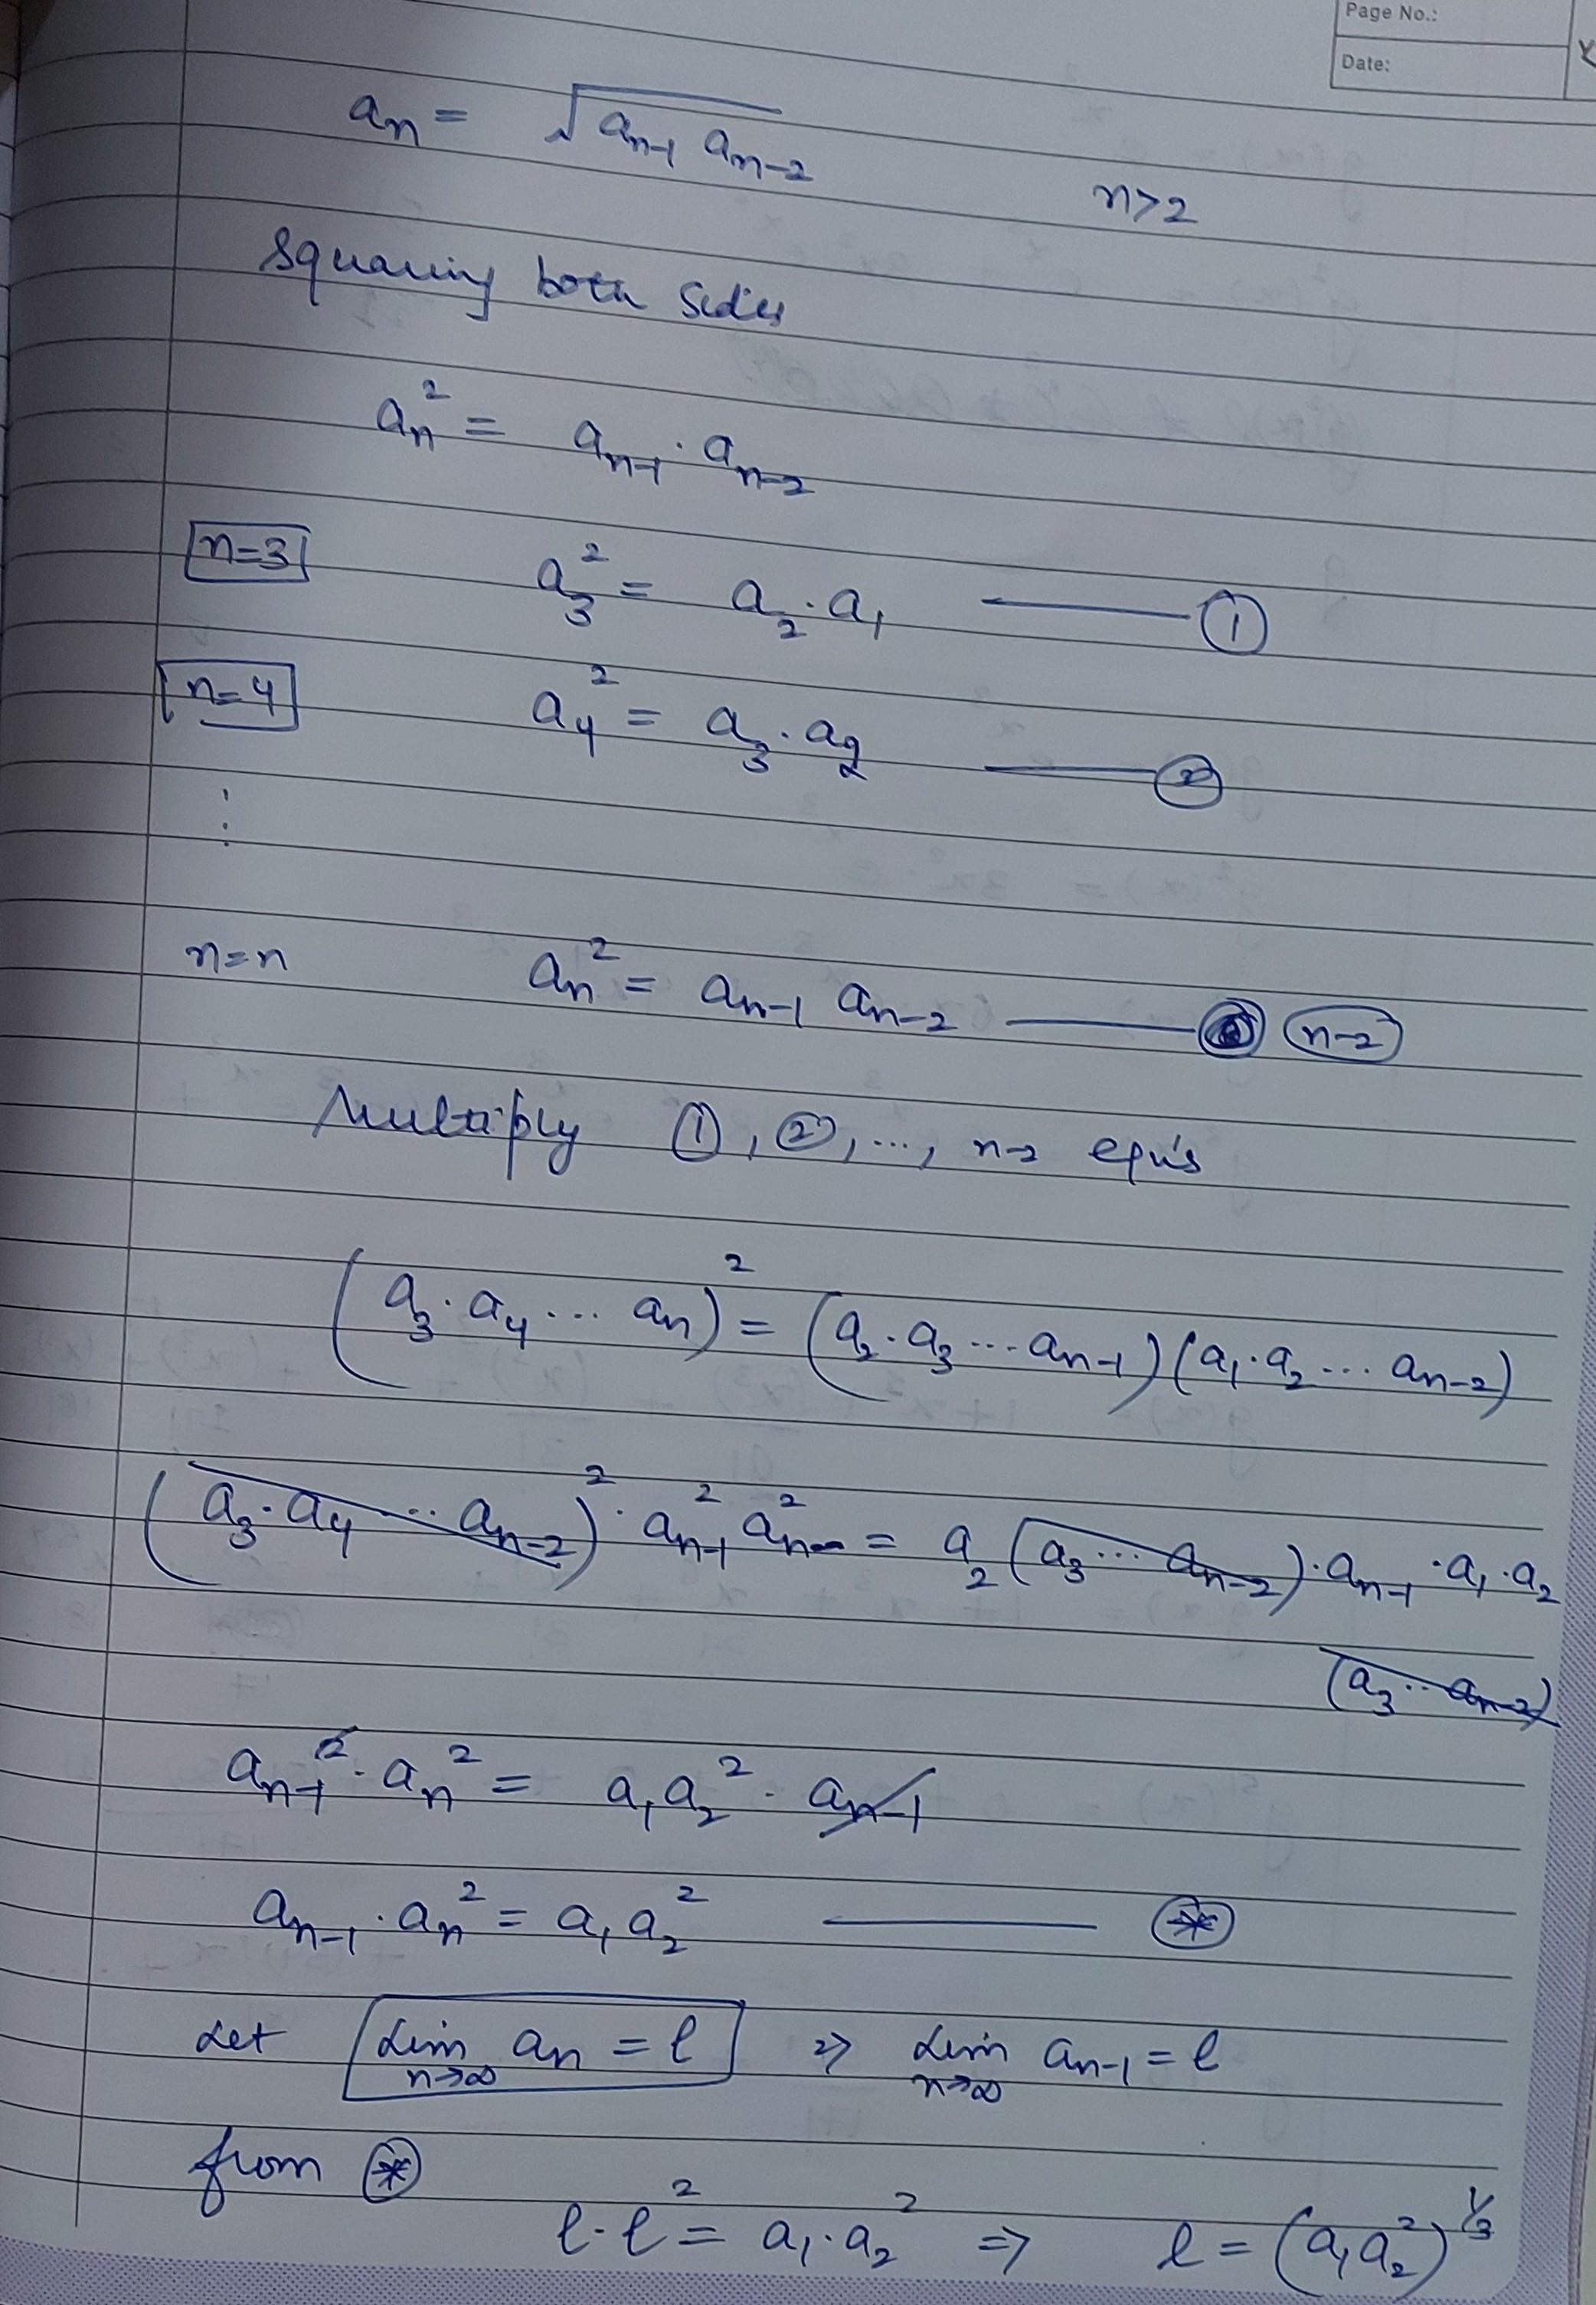 Page No.:
Date:
aₙ = √(aₙ₋₁ aₙ₋₂) n>2
Squaring both sides
aₙ² = aₙ₋₁ · aₙ₋₂
n=3 a₃² = a₂ · a₁ —— ①
n=4 a₄² = a₃ · a₂ —— ②
⋮
n=n aₙ² = aₙ₋₁ aₙ₋₂ —— (n-2)
Multiply ①, ②, ..., n-2 eqn's
(a₃ · a₄ ... aₙ)² = (a₂ · a₃ ... aₙ₋₁) (a₁ · a₂ ... aₙ₋₂)
(a₃ · a₄ ... aₙ₋₂)² · aₙ₋₁² aₙ² = a₂ (a₃ ... aₙ₋₂) · aₙ₋₁ · a₁ · a₂
(a₃ ... aₙ₋₂)
aₙ₋₁² · aₙ² = a₁ a₂² · aₙ₋₁
aₙ₋₁ · aₙ² = a₁ a₂² —— (*)
Let Lim n→∞ aₙ = l ⇒ Lim n→∞ aₙ₋₁ = l
from (*)
l · l² = a₁ · a₂² ⇒ l = (a₁ a₂²)^(1/3)